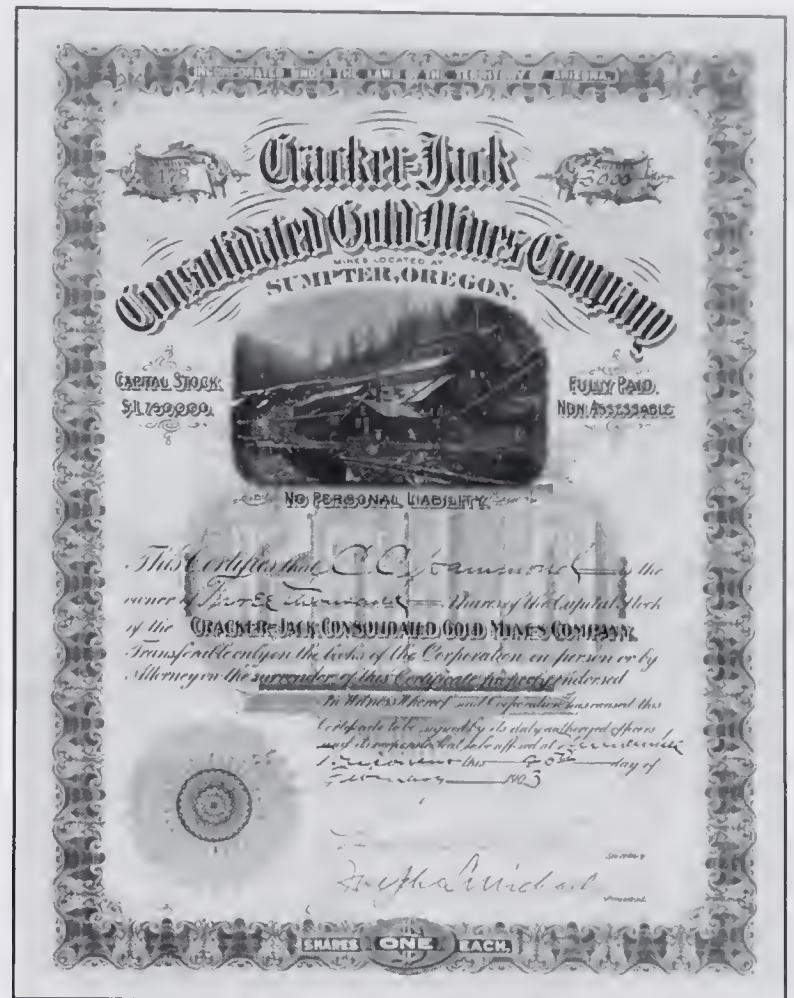 INCORPORATED UNDER THE LAWS OF THE TERRITORY OF ARIZONA.
NUMBER
178
SHARES
3000
Cracker-Jack
Consolidated Gold Mines Company
MINES LOCATED AT
SUMPTER, OREGON.
CAPITAL STOCK
$1,750,000.
FULLY PAID.
NON ASSESSABLE
NO PERSONAL LIABILITY.
This Certifies that C. C. Hammond is the
owner of Three Thousand Shares of the Capital Stock
of the CRACKER-JACK CONSOLIDATED GOLD MINES COMPANY.
Transferable only on the books of the Corporation in person or by
Attorney on the surrender of this Certificate properly endorsed
In Witness Whereof said Corporation has caused this
Certificate to be signed by its duly authorized officers
and its corporate seal to be affixed at
this 20th day of
1903
SECRETARY
PRESIDENT
SHARES ONE EACH.